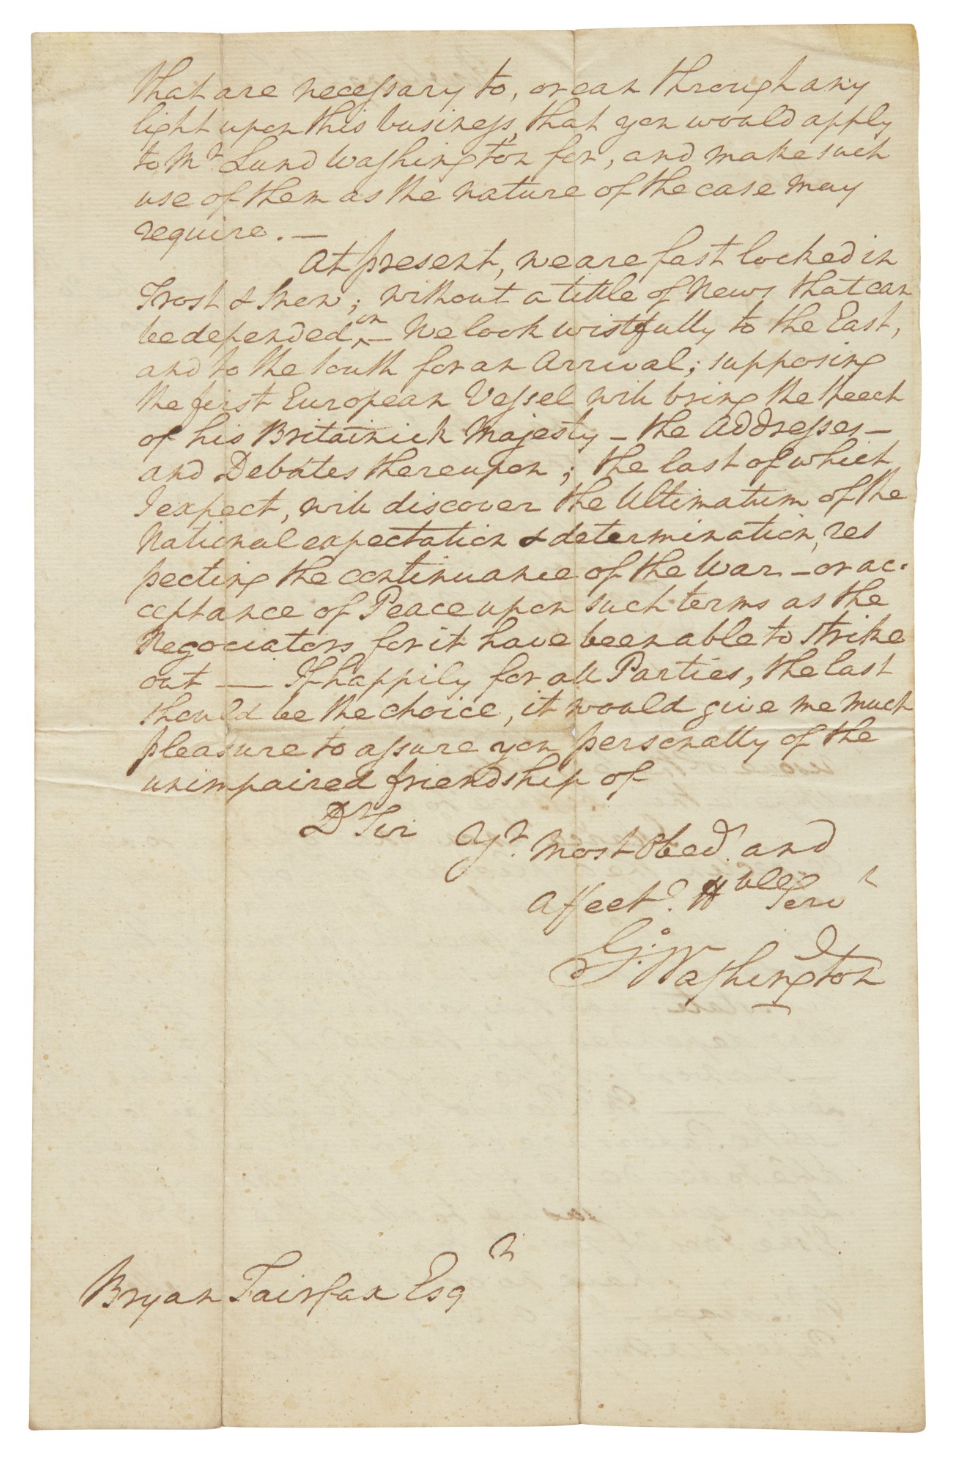 that are necessary to, or can through any
light upon this business, that you would apply
to Mr. Lund Washington for, and make such
use of them as the nature of the case may
require. —
At present, we are fast locked in
Frost & Snow; without a tittle of News that can
be depended on — We look wistfully to the East,
and to the South for an Arrival; supposing
the first European Vessel will bring the speech
of his Britainick Majesty — the Addresses —
and Debates thereupon; the last of which
I expect, will discover the Ultimatum of the
National expectation & determination, res
pecting the continuance of the War — or ac-
ceptance of Peace upon such terms as the
Negociators for it have been able to strike
out — If happily for all Parties, the last
should be the choice, it would give me much
pleasure to assure you personally of the
unimpaired friendship of
Dr Sir
Yr. most Obedt. and
Affecte. Hble Servt
Go: Washington
Bryan Fairfax Esqr